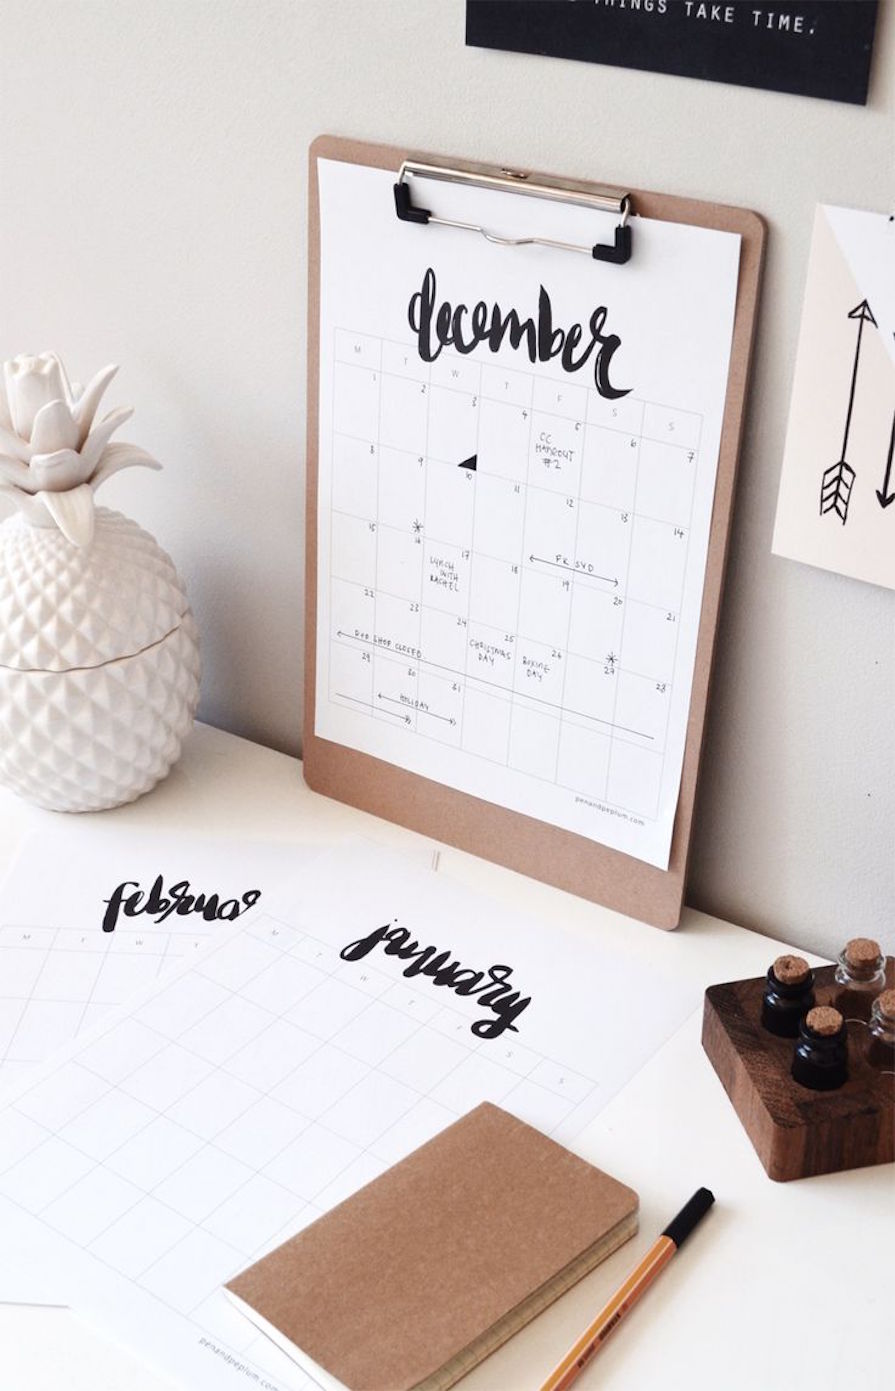 THINGS TAKE TIME.
december
M T W T F S S
1 2 3 4 5 6 7
CC
HANDOUT
#2
8 9 10 11 12 13 14
*
FK SYD
15 16 17 18 19 20 21
LUNCH
WITH
RACHEL
*
22 23 24 25 26 27 28
DUD SHOP CLOSED
CHRISTMAS
DAY
BOXING
DAY
29 30 31
HOLIDAY
penandpeplum.com
februar
M T W T
january
M T W T F S S
penandpeplum.com